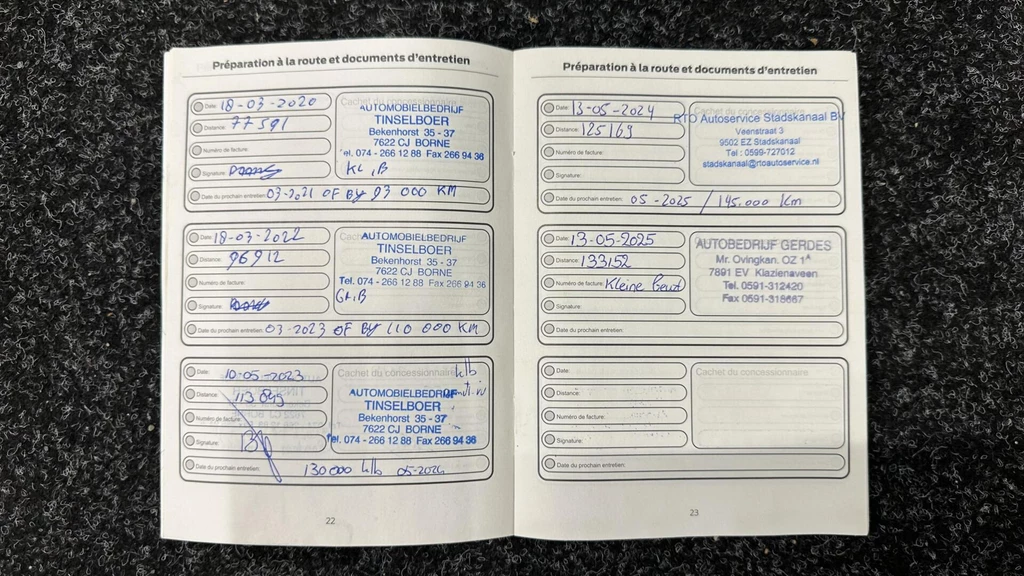 Préparation à la route et documents d'entretien
Date: 18-03-2020
Distance: 77591
Numéro de facture:
Signature:
Cachet du concessionnaire
AUTOMOBIELBEDRIJF
TINSELBOER
Bekenhorst 35 - 37
7622 CJ BORNE
Tel. 074 - 266 12 88 Fax 266 94 36
KL, B
Date du prochain entretien: 03-2021 OF BY 93 000 KM
Date: 18-03-2022
Distance: 96912
Numéro de facture:
Signature:
AUTOMOBIELBEDRIJF
TINSELBOER
Bekenhorst 35 - 37
7622 CJ BORNE
Tel. 074 - 266 12 88 Fax 266 94 36
GR, B
Date du prochain entretien: 03-2023 OF BY 110 000 KM
Date: 10-05-2023
Distance:
Numéro de facture:
Signature:
Cachet du concessionnaire klb
AUTOMOBIELBEDRIJF
TINSELBOER
Bekenhorst 35 - 37
7622 CJ BORNE
Tel. 074 - 266 12 88 Fax 266 94 36
Date du prochain entretien: 130000 klb 05-2024
22
Préparation à la route et documents d'entretien
Date: 13-05-2024
Distance: 125169
Numéro de facture:
Signature:
Cachet du concessionnaire
RTO Autoservice Stadskanaal BV
Veenstraat 3
9502 EZ Stadskanaal
Tel : 0599-727012
stadskanaal@rtoautoservice.nl
Date du prochain entretien: 05-2025 / 145.000 Km
Date: 13-05-2025
Distance: 133152
Numéro de facture: Kleine Beurt
Signature:
AUTOBEDRIJF GERDES
Mr. Ovingkan. OZ 1A
7891 EV Klazienaveen
Tel. 0591-312420
Fax 0591-318667
Date du prochain entretien:
Date:
Distance:
Numéro de facture:
Signature:
Cachet du concessionnaire
Date du prochain entretien:
23